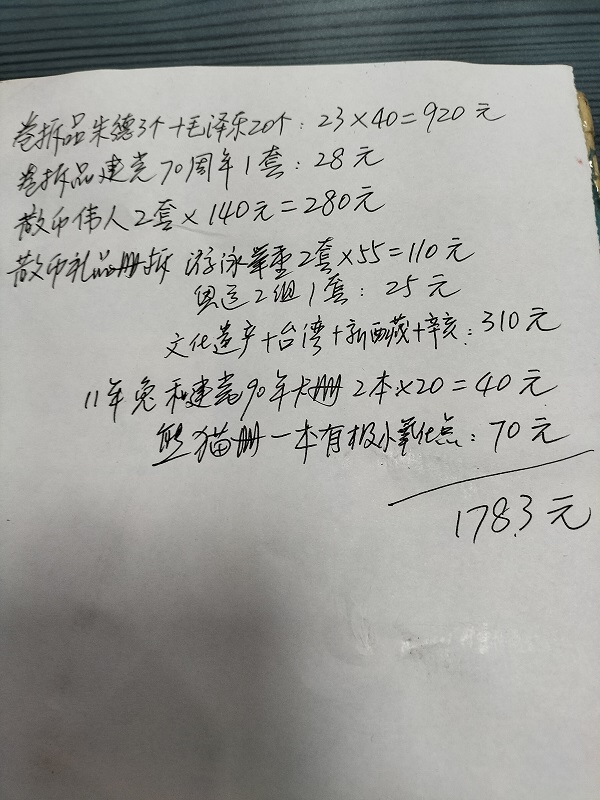 卷拆品朱德3个+毛泽东20个：23×40=920元
卷拆品建党70周年1套：28元
散币伟人2套×140元=280元
散币礼品册拆 游泳举重2套×55=110元
奥运2组1套：25元
文化遗产+台湾+新西藏+辛亥：310元
11年兔和建党90年卡册2本×20=40元
熊猫册一本有极小氧化点：70元
1783元